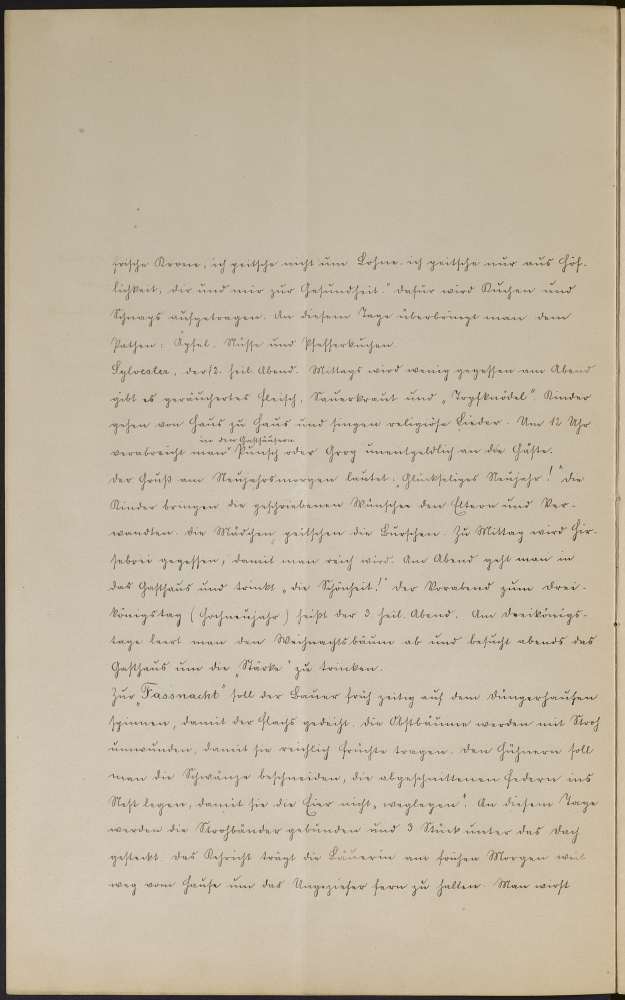 frische Krone, ich peitsche nicht um Lohne, ich peitsche nur aus Höf-
lichkeit, dir und mir zur Gesundheit." Dafür wird Kuchen und
Schnaps aufgetragen. An diesem Tage überbringt man dem
Pathen: Äpfel, Nüsse und Pfefferkuchen.
Sylvester, der 2. heil. Abend. Mittags wird wenig gegessen am Abend
gibt es geräuchertes Fleisch, Sauerkraut und „Topfknödel" Kinder
gehen von Haus zu Haus und singen religiöse Lieder. Um 12 Uhr
in den Gasthäusern
verabreicht man Punsch oder Grog unentgeldlich an die Gäste.
Der Gruß am Neujahrsmorgen lautet: Glückseliges Neujahr!" Die
Kinder bringen die geschriebenen Wünsche den Eltern und Ver-
wandten. Die Mädchen peitschen die Burschen. Zu Mittag wird Hir-
sebrei gegessen, damit man reich wird. Am Abend geht man in
das Gasthaus und trinkt „die Schönheit!" Der Vorabend zum Drei-
königstag (Hochneujahr) heißt der 3. heil. Abend. Am Dreikönigs-
tage leert man den Weihnachtsbaum ab und besucht abends das
Gasthaus um die „Stärke" zu trinken.
Zur „Fassnacht" soll der Bauer früh zeitig auf dem Düngerhaufen
spinnen, damit der Flachs gedeiht. Die Obstbäume werden mit Stroh
umwunden, damit sie reichlich Früchte tragen. Den Hühnern soll
man die Schwänze beschneiden, die abgeschnittenen Federn ins
Nest legen, damit sie die Eier nicht „weglegen". An diesem Tage
werden die Strohbänder gebunden und 3 Stück unter das Dach
gesteckt. Das Kehricht trägt die Bäuerin am frühen Morgen weit
weg vom Hause um das Ungeziefer fern zu halten. Man wirft